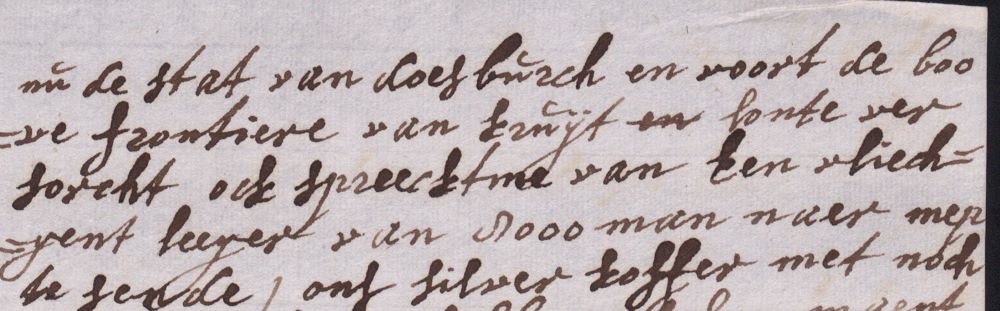 nu de stat van doesburch en voort de boo
=ve frontiere van kruijt en lonte ver
sorcht ock spreecktme van een vliech=
=gent leeger van 8000 man naer mep
te sende / ons silver koffer met noch